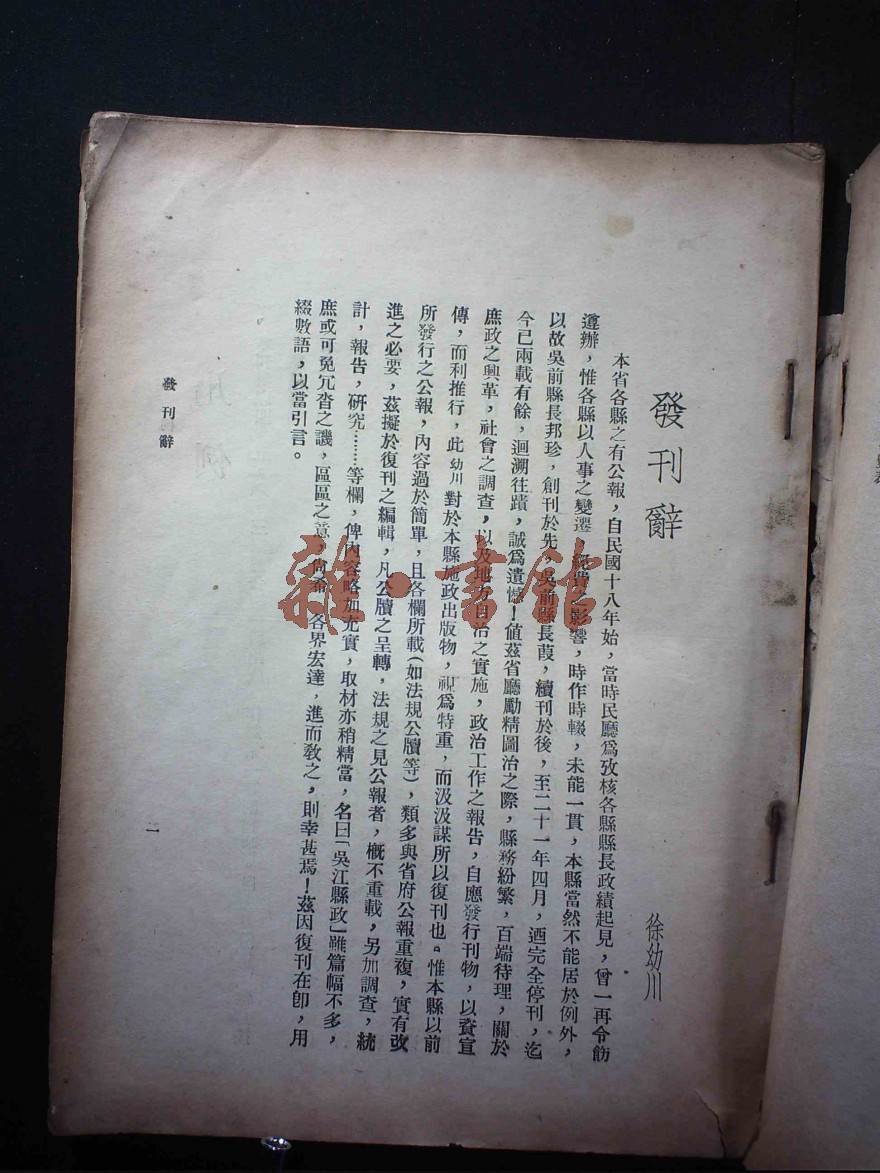 發刊辭
徐幼川
本省各縣之有公報，自民國十八年始，當時民廳爲攷核各縣縣長政績起見，曾一再令飭
遵辦，惟各縣以人事之變遷 經費之影響，時作時輟，未能一貫，本縣當然不能居於例外，
以故吳前縣長邦珍，創刊於先，吳前縣長葭，續刊於後，至二十一年四月，迺完全停刊，迄
今已兩載有餘，迴溯往蹟，誠爲遺憾！値茲省廳勵精圖治之際，縣務紛繁，百端待理，關於
庶政之興革，社會之調查，以及地方自治之實施，政治工作之報告，自應發行刊物，以資宣
傳，而利推行，此幼川對於本縣施政出版物，視爲特重，而汲汲謀所以復刊也。惟本縣以前
所發行之公報，內容過於簡單，且各欄所載（如法規公牘等），類多與省府公報重複，實有改
進之必要，茲擬於復刊之編輯，凡公牘之呈轉，法規之見公報者，槪不重載，另加調查，統
計，報告，研究……等欄，俾內容略加充實，取材亦稍精當，名曰「吳江縣政」雖篇幅不多，
庶或可免冗沓之譏，區區之意，尙希 各界宏達，進而敎之，則幸甚焉！茲因復刊在卽，用
綴數語，以當引言。
發刊辭
一
雜·書館